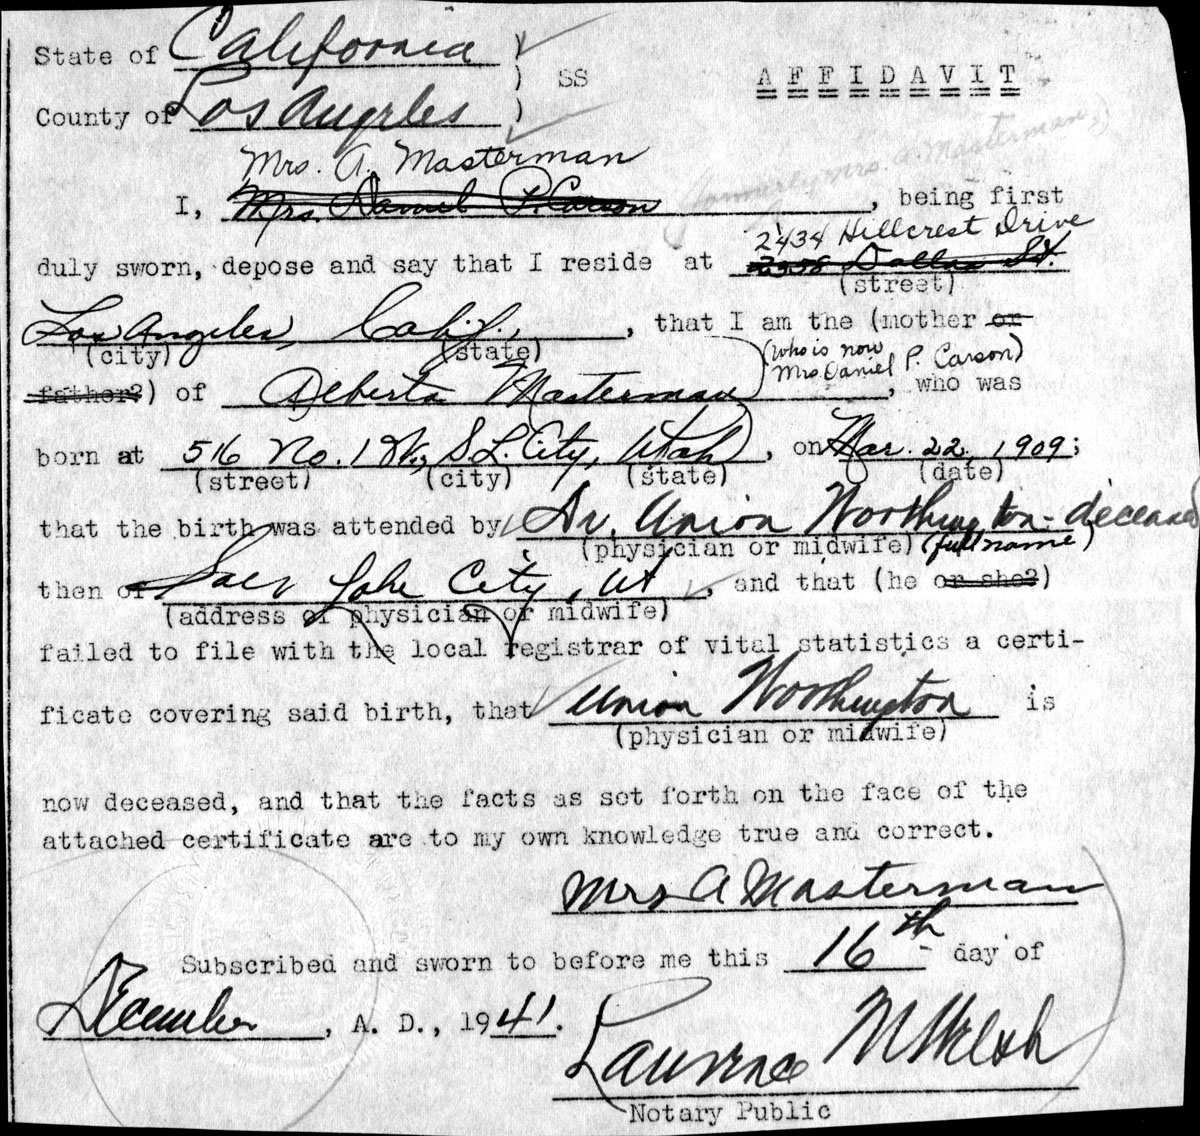 State of California )
) SS A F F I D A V I T
County of Los Angeles )
Mrs. A. Masterman (formerly Mrs. A. Masterman)
I, Mrs. Daniel P. Carson, being first
2434 Hillcrest Drive
duly sworn, depose and say that I reside at 2338 Dallas St.
(street)
Los Angeles, Calif., that I am the (mother or
(city) (state) (who is now
Mrs. Daniel P. Carson)
father?) of Alberta Masterman, who was
born at 516 No. 1 W., S. L. City, Utah, on Mar. 22, 1909;
(street) (city) (state) (date)
that the birth was attended by Dr. Union Worthington - deceased
(physician or midwife) (full name)
then of Salt Lake City, Ut, and that (he or she?)
(address of physician or midwife)
failed to file with the local registrar of vital statistics a certi-
ficate covering said birth, that Union Worthington is
(physician or midwife)
now deceased, and that the facts as set forth on the face of the
attached certificate are to my own knowledge true and correct.
Mrs A Masterman
Subscribed and sworn to before me this 16th day of
December, A. D., 1941.
Laurence M Welsh
Notary Public